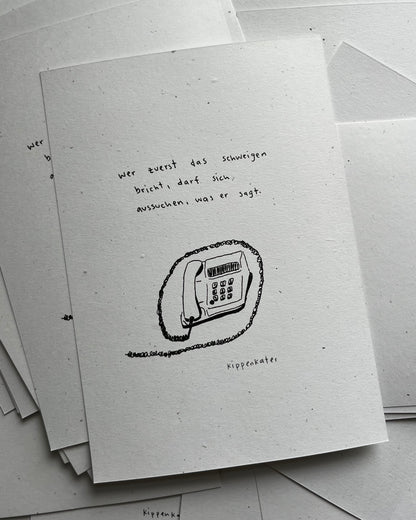 wer zuerst das schweigen
bricht, darf sich,
aussuchen, was er sagt.
kippenkater
wer
kippenka